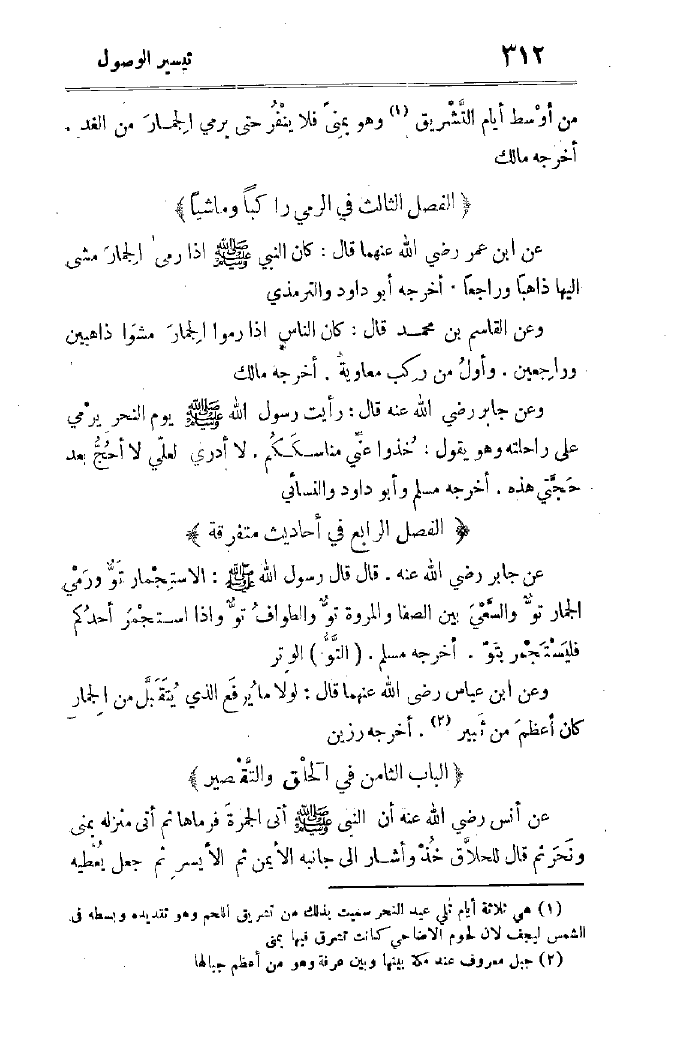 ٣١٢ تيسير الوصول
من أوْسط أيام التَّشْريق (١) وهو بمِنىً فلا ينْفُر حتى يرمي الجمارَ من الغد .
أخرجه مالك
﴿ الفصل الثالث في الرمي راكباً وماشياً ﴾
عن ابن عمر رضي الله عنهما قال : كان النبي ﷺ اذا رمى الجمارَ مشى
اليها ذاهباً وراجعاً . أخرجه أبو داود والترمذي
وعن القاسم بن محمد قال : كان الناس اذا رموا الجمارَ مشوَا ذاهبين
وراجعين . وأولُ من ركب معاويةُ . أخرجه مالك
وعن جابر رضي الله عنه قال : رأيت رسول الله ﷺ يوم النحر يرْمي
على راحلته وهو يقول : خُذوا عنِّي مناسككُم . لا أدري لعلّي لا أحُجُّ بعد
حَجَّتي هذه . أخرجه مسلم وأبو داود والنسائي
﴿ الفصل الرابع في أحاديث متفرقة ﴾
عن جابر رضي الله عنه . قال قال رسول الله ﷺ : الاستِجْمار تَوٌّ ورَمْي
الجمار توٌّ والسَّعْيُ بين الصفا والمروة توٌّ والطوافُ توٌّ واذا استجْمَرَ أحدُكم
فليَسْتَجْمِر بتَوّ . أخرجه مسلم . ( التَّوُّ ) الوِتر
وعن ابن عباس رضي الله عنهما قال : لولا ما يُرفَع الذي يُتَقَبَّل من الجمار
كان أعظمَ من ثَبير (٢) . أخرجه رزين
﴿ الباب الثامن في الحَلْق والتَّقْصير ﴾
عن أنس رضي الله عنه أن النبي ﷺ أتى الجمرةَ فرماها ثم أتى منزله بمنى
ونَحَرَ ثم قال للحلاّق خُذْ وأشار الى جانبه الأيمن ثم الأيسر ثم جعل يُعْطيه
(١) هي ثلاثة أيام تلي عيد النحر سميت بذلك من تشريق اللحم وهو تقديده وبسطه في
الشمس ليجف لان لحوم الاضاحي كانت تشرق فيها بمنى
(٢) جبل معروف عند مكة بينها وبين عرفة وهو من أعظم جبالها